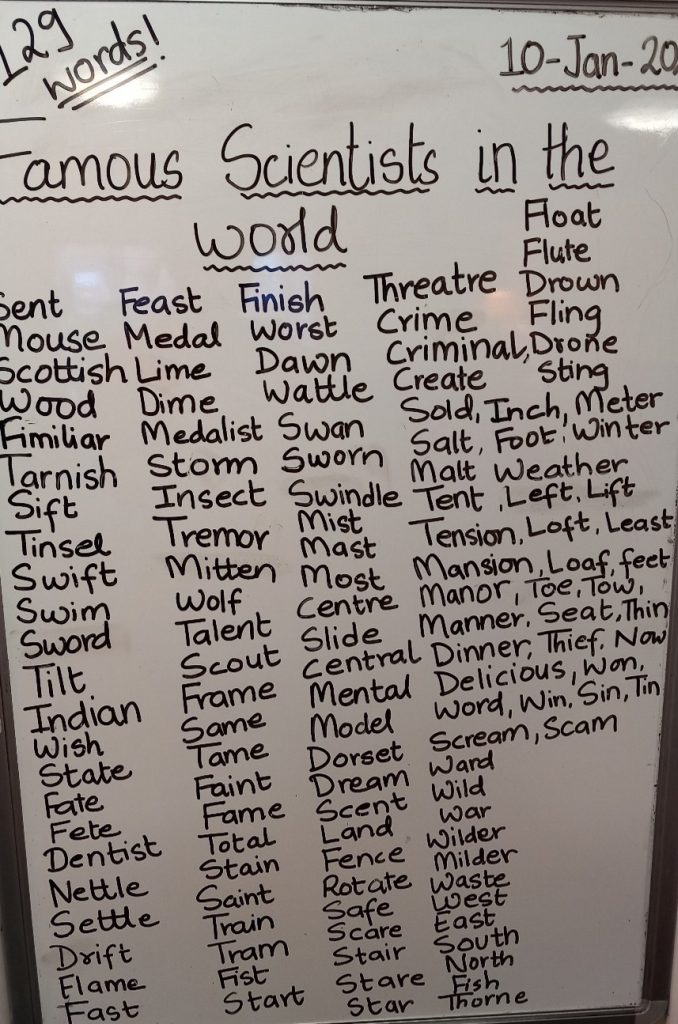 129
words!
10-Jan-20
Famous Scientists in the
world
Sent
Mouse
Scottish
Wood
Fimiliar
Tarnish
Sift
Tinsel
Swift
Swim
Sword
Tilt
Indian
Wish
State
Fate
Fete
Dentist
Nettle
Settle
Drift
Flame
Fast
Feast
Medal
Lime
Dime
Medalist
Storm
Insect
Tremor
Mitten
Wolf
Talent
Scout
Frame
Same
Tame
Faint
Fame
Total
Stain
Saint
Train
Tram
Fist
Start
Finish
Worst
Dawn
Wattle
Swan
Sworn
Swindle
Mist
Mast
Most
Centre
Slide
Central
Mental
Model
Dorset
Dream
Scent
Land
Fence
Rotate
Safe
Scare
Stair
Stare
Star
Float
Flute
Threatre Drown
Crime Fling
Criminal, Drone
Create Sting
Sold, Inch, Meter
Salt, Foot, Winter
Malt Weather
Tent, Left, Lift
Tension, Loft, Least
Mansion, Loaf, feet
Manor, Toe, Tow,
Manner, Seat, Thin
Dinner, Thief, Now
Delicious, Won,
Word, Win, Sin, Tin
Scream, Scam
Ward
Wild
War
Wilder
Milder
Waste
West
East
South
North
Fish
Thorne